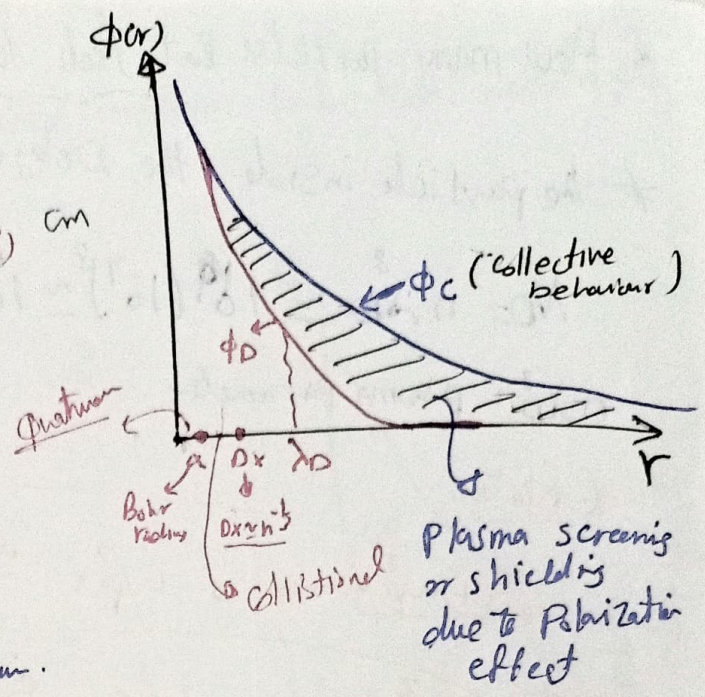 ϕ(r)
cm
ϕc (collective
behaviour)
ϕD
Quatum
a Dx λD
r
Bohr
radius
Dx ≃ n^-1/3
collistional
Plasma screenig
or shielding
due to Polarization
effect